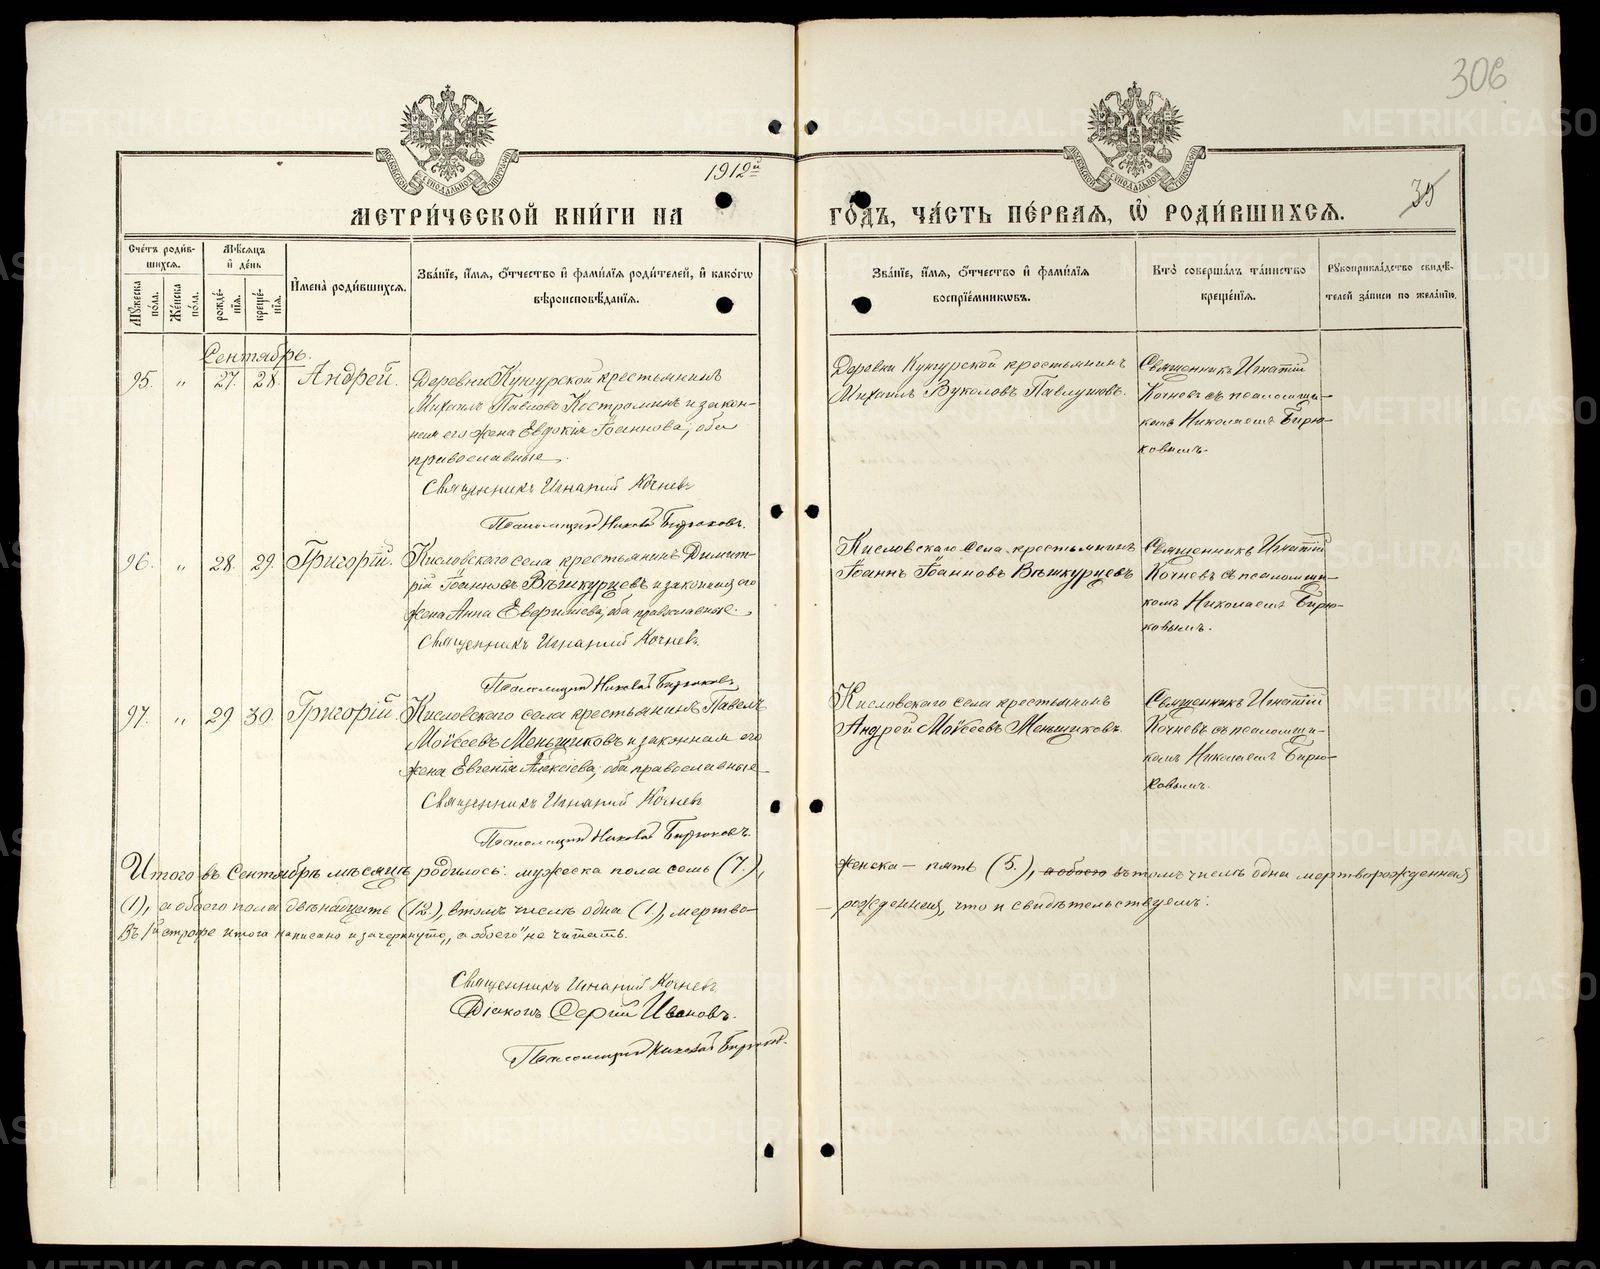 306
1912й
35
МЕТРИ́ЧЕСКОЙ КНИ́ГИ НА
ГО́ДЪ, ЧА́СТЬ ПЕ́РВАЯ, Ѡ҆ РОДИ́ВШИХСЯ.
Сче́тъ роди́в-
шихся.
Мꙋ́жеска по́ла.
Же́нска по́ла.
Мѣ́сяцъ
и҆ де́нь
рожде́-
нїя.
креще́-
нїя.
И҆мена̀ роди́вшихся.
Зва́нїе, и҆́мя, ѻ҆́тчество и҆ фами́лїя роди́телей, и҆ како́гѡ
вѣроисповѣ́данїя.
Зва́нїе, и҆́мя, ѻ҆́тчество и҆ фами́лїя
воспрїе́мниковъ.
Кто̀ соверша́лъ та́инство
креще́нїя.
Рꙋкоприкла́дство свидѣ́-
телей за́писи по жела́нїю.
Сентябрь.
95. „ 27. 28. Андрей.
Деревни Кунгурской крестьянинъ
Михаилъ Павловъ Костроминъ и закон-
ная его жена Евдокія Іоаннова, оба
православные.
Священникъ Игнатий Кочневъ
Псаломщикъ Николай Бирюковъ.
Деревни Кунгурской крестьянинъ
Михаилъ Вуколовъ Павлуховъ.
Священникъ Игнатій
Кочневъ съ псаломщи-
комъ Николаемъ Бирю-
ковымъ.
96. „ 28. 29. Григорій.
Кисловскаго села крестьянинъ Димит-
рій Іоанновъ Вѣшкурцевъ и законная его
жена Анна, оба православные.
Священникъ Игнатий Кочневъ.
Псаломщикъ Николай Бирюковъ
Кисловскаго села крестьянинъ
Іоаннъ Іоанновъ Вѣшкурцевъ
Священникъ Игнатій
Кочневъ съ псаломщи-
комъ Николаемъ Бирю-
ковымъ.
97. „ 29 30. Григорій.
Кисловскаго села крестьянинъ Павелъ
Моѵсеевъ Меньщиковъ и законная его
жена Евгенія Алексіева, оба православные
Священникъ Игнатий Кочневъ
Псаломщикъ Николай Бирюковъ.
Кисловскаго села крестьянинъ
Андрей Моѵсеевъ Меньщиковъ.
Священникъ Игнатій
Кочневъ съ псаломщи-
комъ Николаемъ Бирю-
ковымъ.
Итого въ Сентябрѣ мѣсяцѣ родилось: мужеска пола семь (7.),
женска – пять (5.), а обоего въ томъ числѣ одна мертворожденная
(1), а обоего пола двѣнадцать (12), въ томъ числѣ одна (1), мертво-
рожденная, что и свидѣтельствуемъ:
Въ 1й строфе итога написано и зачеркнуто „а обоего" не читать.
Священникъ Игнатий Кочневъ
Діаконъ Сергій Ивановъ.
Псаломщикъ Николай Бирюковъ.
METRIKI.GASO-URAL.RU